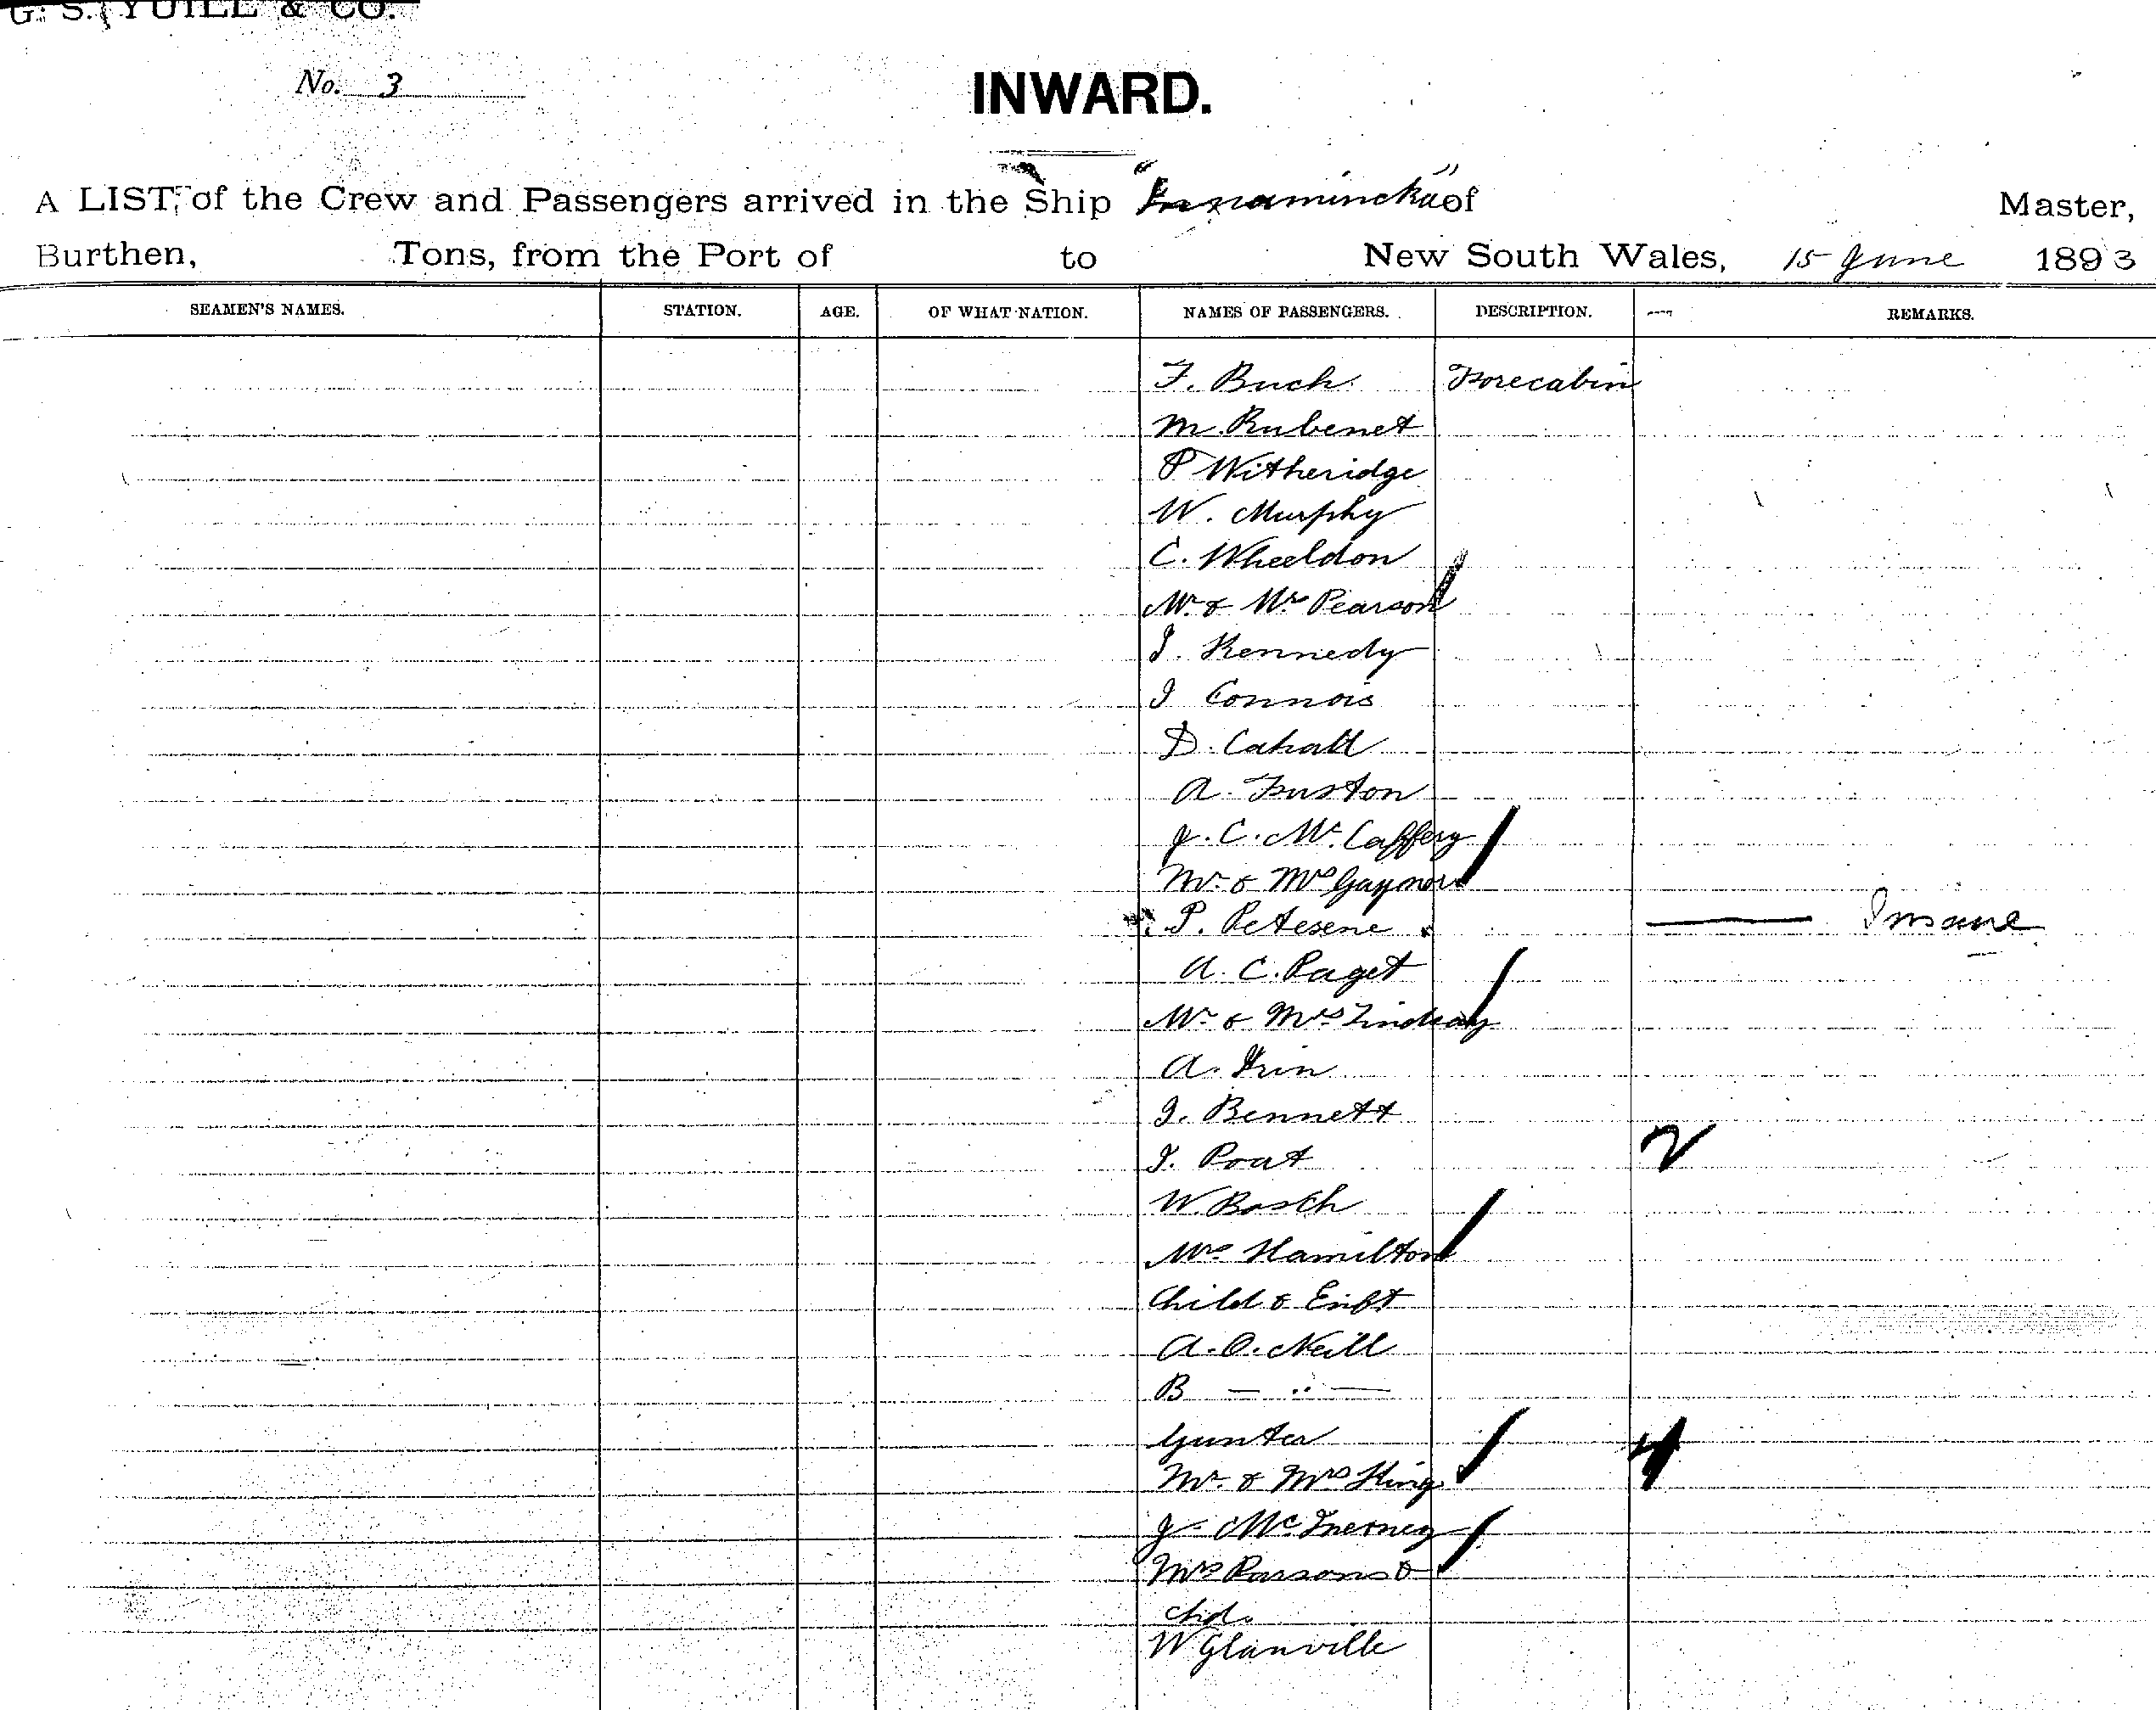 G. S. YUILL & CO.
No. 3
INWARD.
A LIST, of the Crew and Passengers arrived in the Ship "Innamincka" of Master,
Burthen, Tons, from the Port of to New South Wales, 15 June 1893
SEAMEN'S NAMES. STATION. AGE. OF WHAT NATION. NAMES OF PASSENGERS. DESCRIPTION. REMARKS.
F. Buch Forecabin
M. Rubenet
P Witheridge
W. Murphy
C. Wheeldon
Mr & Mrs Pearson
J. Kennedy
J Connors
D. Cahall
A. Fuston
J. C. McCaffery
Mr & Mrs Gaynor
P. Petesene Insane
A. C. Paget
Mr & Mrs Lindsay
A.
J. Bennett
J. Poat
W. Basch
Mrs Hamilton
Child &
A. O. Neill
B — " —
Gunter
Mr & Mrs King
J. McInerney
Mrs Parsons &
chd.
W Glanville